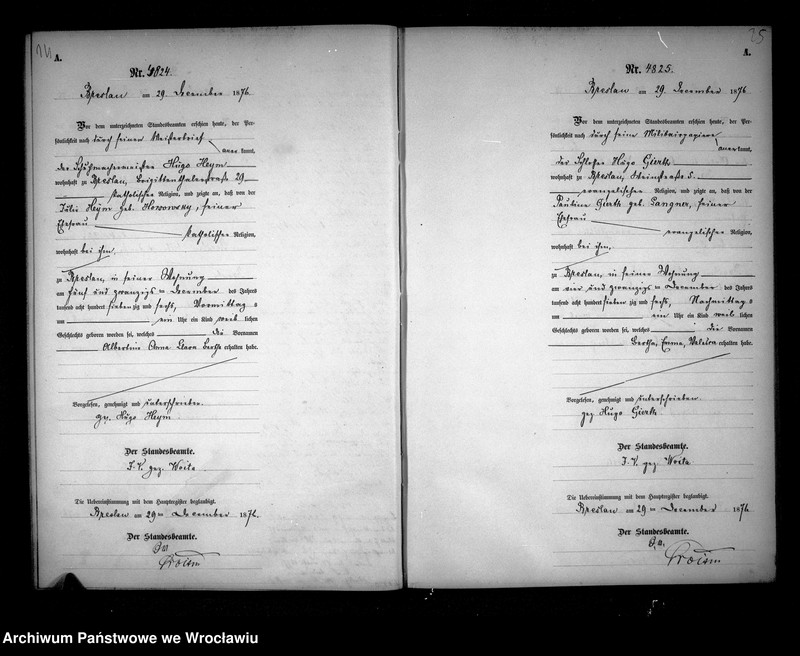 A.
Nr. 4824.
Breslau am 29. December 1876
Vor dem unterzeichneten Standesbeamten erschien heute, der Per-
sönlichkeit nach durch seinen Meisterbrief
aner kannt,
der Schuhmachermeister Hugo Heym
wohnhaft zu Breslau, Brigittenthalerstraße 29
katholischer Religion, und zeigte an, daß von der
Julie Heym geb. seiner
Ehefrau
katholischer Religion,
wohnhaft bei ihm,
zu Breslau, in seiner Wohnung
am fünf und zwanzigs ten December des Jahres
tausend acht hundert sieben zig und sechs, Vormittag s
um ein Uhr ein Kind weib lichen
Geschlechts geboren worden sei, welches die Vornamen
Albertine Anna Clara Bertha erhalten habe.
Vorgelesen, genehmigt und unterschrieben.
gez. Hugo Heym
Der Standesbeamte.
I. V. gez. Woita
Die Uebereinstimmung mit dem Hauptregister beglaubigt.
Breslau am 29 ten December 1876.
Der Standesbeamte.
25
A.
Nr. 4825.
Breslau am 29. December 1876
Vor dem unterzeichneten Standesbeamten erschien heute, der Per-
sönlichkeit nach durch seine Militairpapiere
aner kannt,
der Schlosser Hugo Gierth
wohnhaft zu Breslau, Steinstraße 5.
evangelischer Religion, und zeigte an, daß von der
Pauline Gierth geb. Langner, seiner
Ehefrau
evangelischer Religion,
wohnhaft bei ihm,
zu Breslau, in seiner Wohnung
am vier und zwanzigs ten December des Jahres
tausend acht hundert sieben zig und sechs, Nachmittag s
um ein Uhr ein Kind weib lichen
Geschlechts geboren worden sei, welches die Vornamen
Bertha, Emma, Valeska erhalten habe.
Vorgelesen, genehmigt und unterschrieben.
gez. Hugo Gierth
Der Standesbeamte.
I. V. gez. Woita
Die Uebereinstimmung mit dem Hauptregister beglaubigt.
Breslau am 29 ten December 1876.
Der Standesbeamte.
Archiwum Państwowe we Wrocławiu